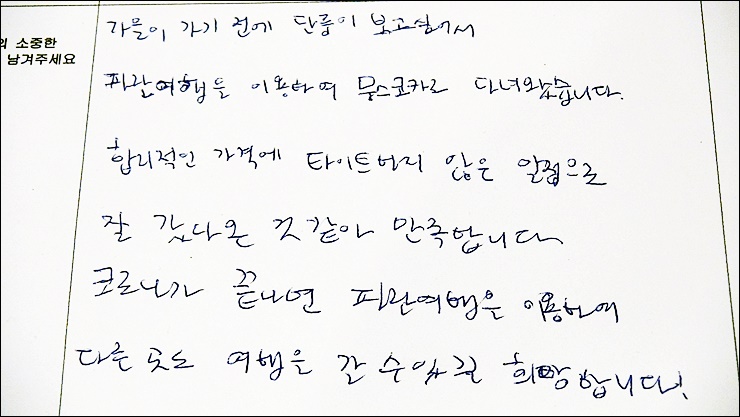 의 소중한
남겨주세요
가을이 가기 전에 단풍이 보고싶어서
파란여행을 이용하여 무스코카로 다녀왔습니다.
합리적인 가격에 타이트하지 않은 일정으로
잘 갔다온 것 같아 만족합니다
코로나가 끝나면 파란여행을 이용하여
다른 곳도 여행을 갈 수 있길 희망합니다!